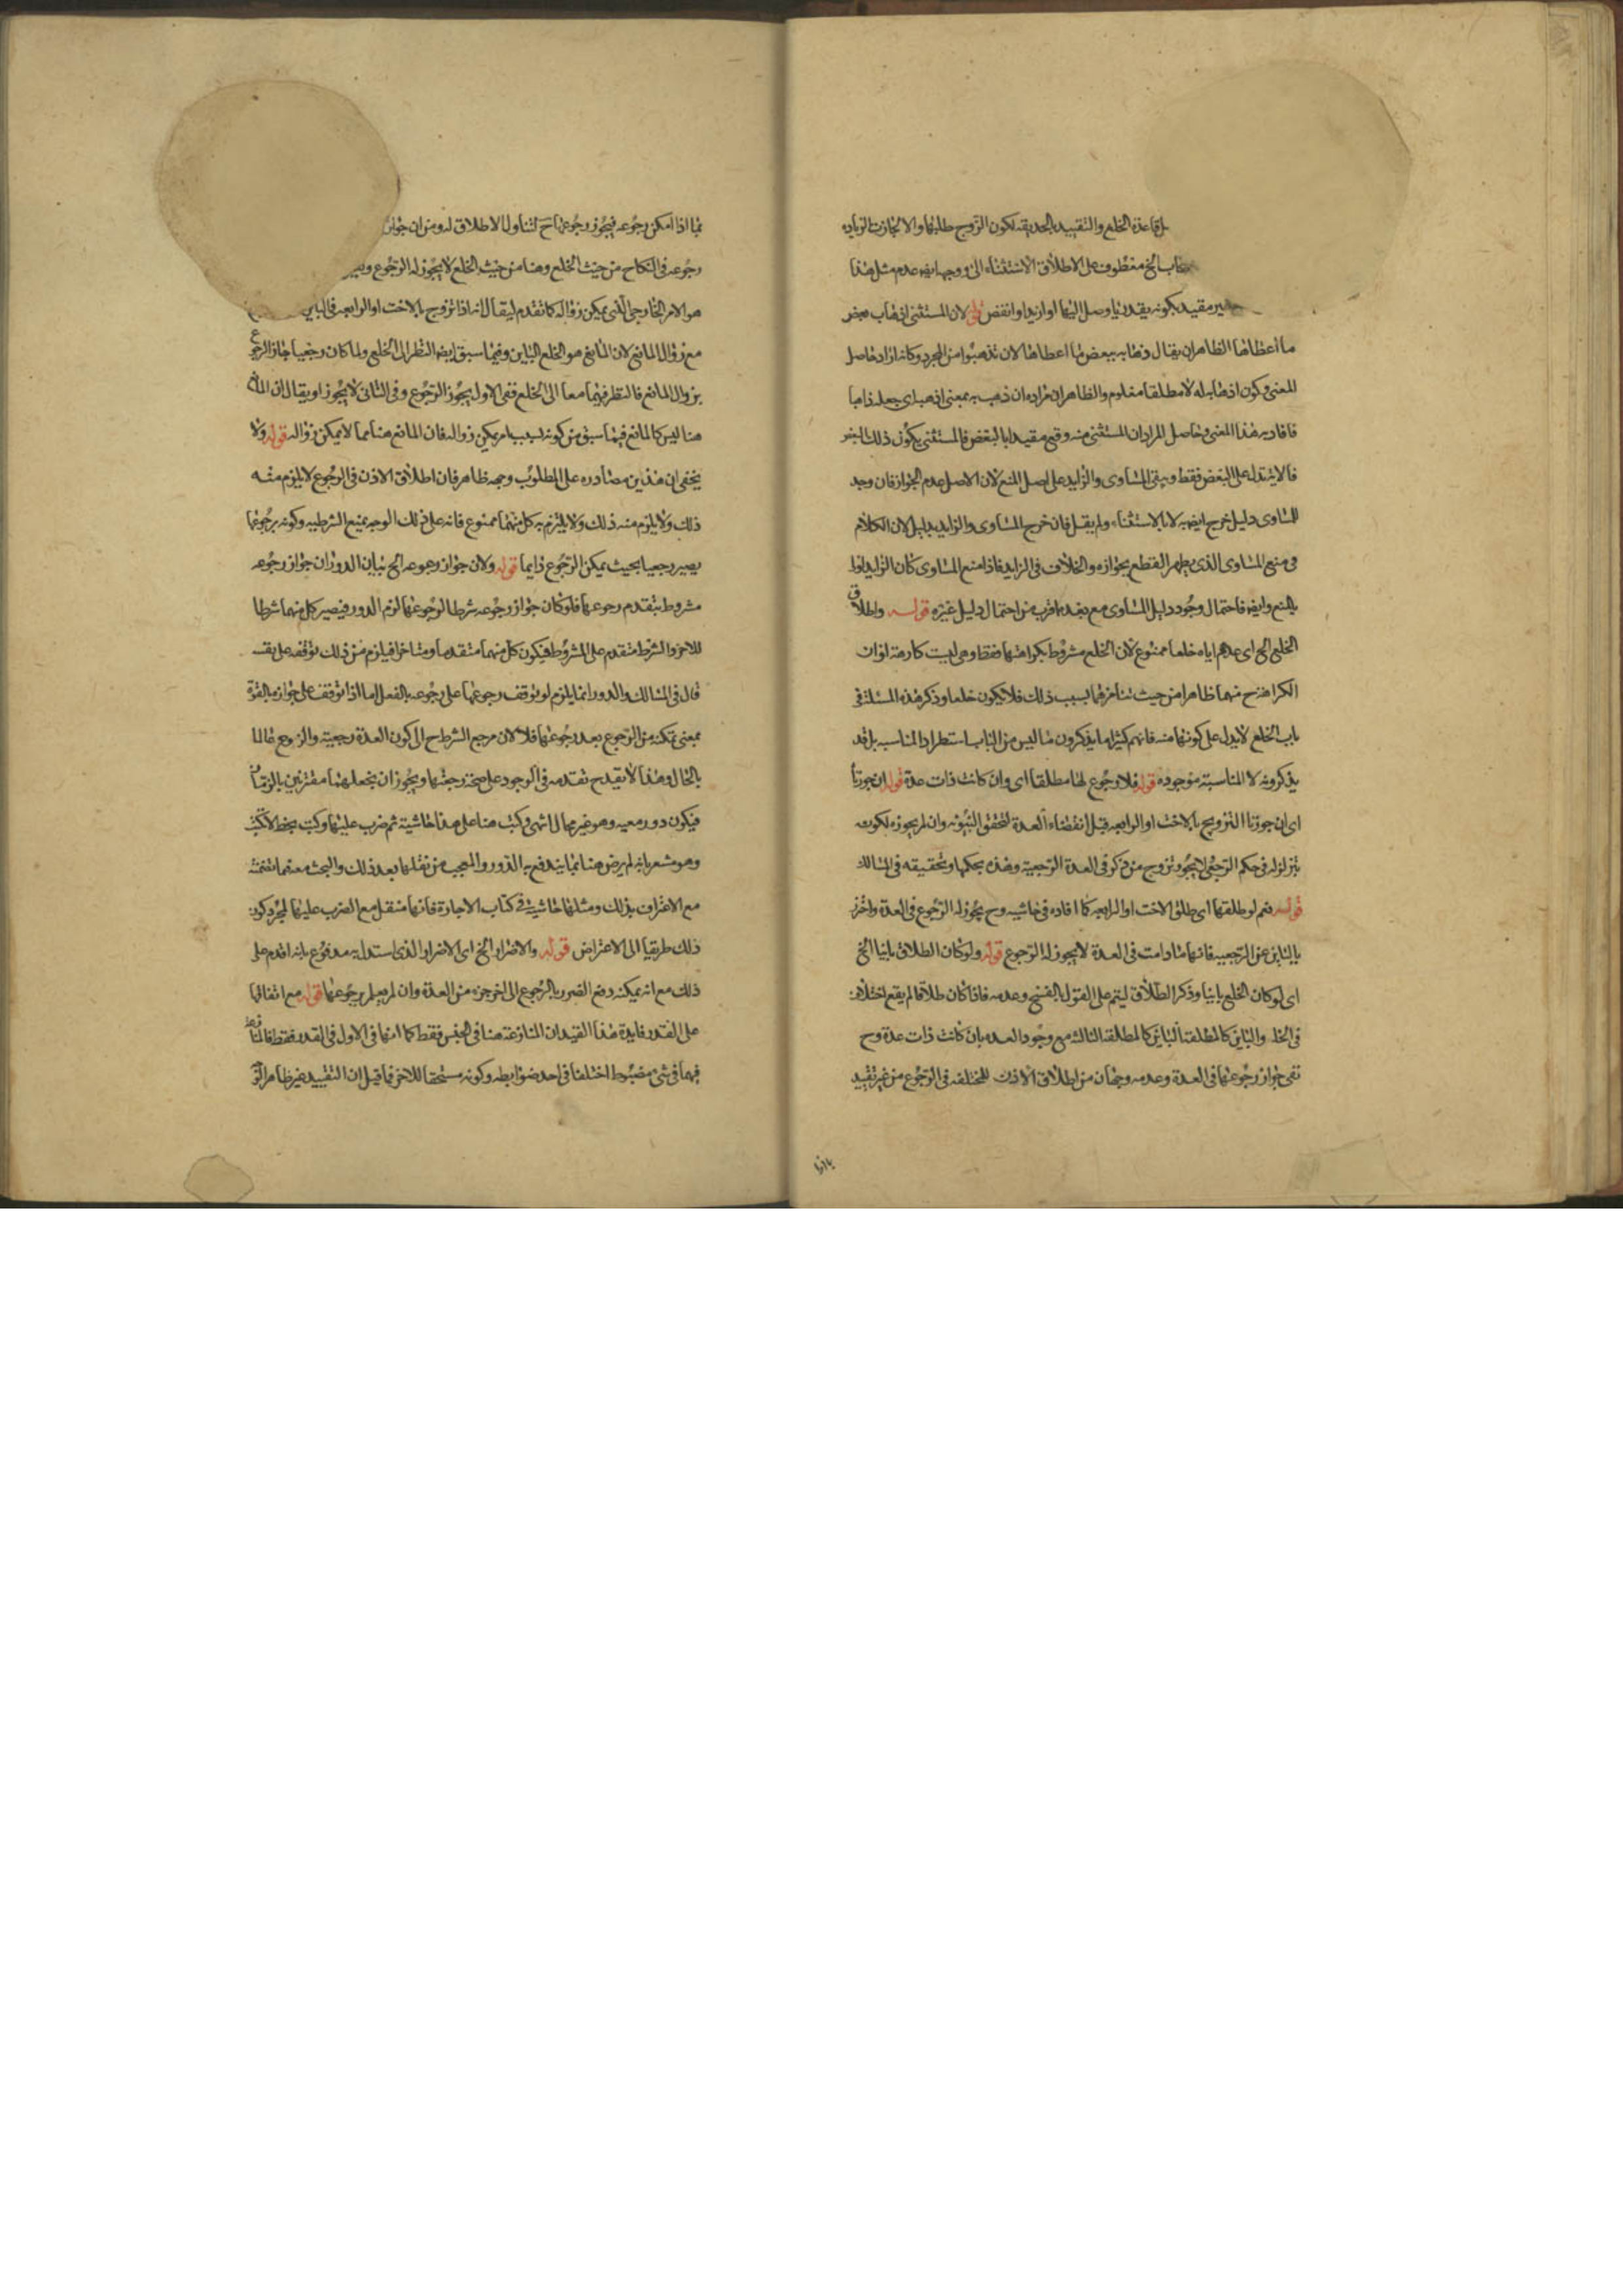 بل قاعدة الخلع والتقييد بالحديقة لكون الزوج طلبها والا لجازت الزيادة
الخ معطوف على الاطلاق الاستثناء الى ووجهه ايضا عدم مثل هذا
مقيد بكونه بقدر ما وصل اليها او ازيد او انقص قوله لان المستثنى اذهاب بعض
ما اعطاها الظاهر ان يقال ذهابه ببعض ما اعطاها لان تذهبوا من المجرد وكانه اراد حاصل
المعنى وكون اذهابه له لا مطلقا معلوم والظاهر ان مراده ان ذهب به بمعنى اذهبه اى جعله ذاهبا
فافاد به هذا المعنى وحاصل المراد ان المستثنى منه وقع مقيدا بالبعض فالمستثنى يكون ذلك البعض
فالا يتدل على البعض فقط ويبقى المساوى والزايد على اصل المنع لان الاصل عدم الجواز فان وجد
للمساوى دليل خرج ايضا به لا بالاستثناء ولم يقل فان خرج المساوى والزايد بدليل لان الكلام
فى منع المساوى الذى يظهر القطع بجوازه والخلاف فى الزايد فاذا منع المساوى كان الزايد اولى
بالمنع وايضا فاحتمال وجود دليل المساوى مع بعده اقرب من احتمال دليل غيره قوله واطلاق
الخلع الخ اى عدهم اياه خلعا ممنوع لان الخلع مشروط بكراهتها فقط وهى ليست كارهة او ان
الكراهة ح منهما ظاهرا من حيث تنافرهما بسبب ذلك فلا يكون خلعا وذكر هذه المسئلة فى
باب الخلع لا يدل على كونها منه فانهم كثيرا ما يذكرون ما ليس من الباب استطرادا لمناسبة بل قد
يذكرونه لا لمناسبة موجوده قوله فلا رجوع لها مطلقا اى وان كانت ذات عدة قوله ان جوزنا
اى ان جوزنا التزويج بالاخت او الرابعه قبل انقضاء العدة لتحقق البينونه وان لم يجوزه لكونه
يتزلزله فى حكم الرجعى لا يجوز تزوج من ذكر فى العدة الرجعية وهذه بحكمها وتحقيقه فى المسالك
قوله نعم لو طلقها اى طلق الاخت او الرابعه كما افاده فى حاشيه وح يجوز له الرجوع فى العدة واحترز
بالباين عن الرجعيه فانها ما دامت فى العدة لا يجوز له الرجوع قوله ولو كان الطلاق باينا الخ
اى لو كان الخلع باينا وذكر الطلاق ليتم على القول بالفسخ وعدمه فاذا كان طلاقا لم يقع اختلافه
فى الخلع والباين كالمطلقة الباين كالمطلقه الثالثه مع وجود العده بان كانت ذات عدة وح
نفى جواز رجوعها فى العدة وعدمه وجهان من اطلاق الاذن للمختلعه فى الرجوع من غير تقييد
بما اذا امكن رجوعه فيجوز رجوعها ح لتناول الاطلاق له ومن ان جواز
رجوعه فى النكاح من حيث الخلع وهنا من حيث الخلع لا يجوز له الرجوع
هو الامر الخارجى الذى يمكن زواله كما تقدم ليقال انه اذا تزوج بالاخت او الرابعه
مع زوال المانع لان المانع هو الخلع الباين وفيما سبق ايضا النظر الى الخلع ولما كان رجعيا جاز الرجوع
بزوال المانع فالنظر فيهما معا الى الخلع ففى الاول يجوز الرجوع وفى الثانى لا يجوز او يقال ان المانع
هنا ليس كالمانع فيما سبق من كونه بسبب امر يمكن زواله فان المانع هنا مما لا يمكن زواله قوله ولا
يخفى ان هذين مصادره على المطلوب وجهه ظاهر فان اطلاق الاذن فى الرجوع لا يلزم منه
ذلك ولا يلزم منه ذلك ولا يلتزم به كل منهما ممنوع فانه على ذلك الوجه يمنع الشرطيه وكونه برجوعها
يصير رجعيا بحيث يمكن الرجوع دايما قوله ولان جواز رجوعه الخ بيان الدور ان جواز رجوعه
مشروط بتقدم رجوعها فلو كان جواز رجوعه شرطا لرجوعها لزم الدور فيصير كل منهما شرطا
للاخر والشرط متقدم على المشروط فيكون كل منهما متقدما ومتاخرا فيلزم من ذلك توقفه على نفسه
قال فى المسالك والدور انما يلزم لو توقف رجوعها على رجوعه بالفعل اما اذا توقف على جوازه بالقوة
بمعنى تمكنه من الرجوع بعد رجوعها فلا لان مرجع الشرط ح الى كون العدة رجعية والزوج عالما
بالحال وهذا لا يقدح تقدمه فى الوجود على صحة رجعتها ويجوز ان يجعلهما مقترنين بالزمان
فيكون دور معيه وهو غير محال انتهى وكتب هنا على هذا حاشية ثم ضرب عليها وكتب بخطه لا تكتب
وهو مشعر بانه لم يرض هنا بما يندفع به الدور والعجب من نقلها بعد ذلك والبحث معه فيما تضمنته
مع الاعتراف بذلك ومثلها حاشية فى كتاب الاجارة فانها منقل مع الضرب عليها لمجرد كون
ذلك طريقا الى الاعتراض قوله والاضرار الخ اى الاضرار الذى استدل به مدفوع بانه اقدم على
ذلك مع انه يمكنه دفع الضرر بالرجوع الى اخر جزء من العدة وان لم يعلم برجوعها قوله مع اتفاقهما
على القدر فايدة هذا القيد ان المنازعة هنا فى الجنس فقط كما انها فى الاول فى القدر فقط فالمنازعة
فيهما فى شئ مضبوط اختلفا فى احد ضوابطه وكونه مستحقا للاخر فما قيل ان التقييد غير ظاهر